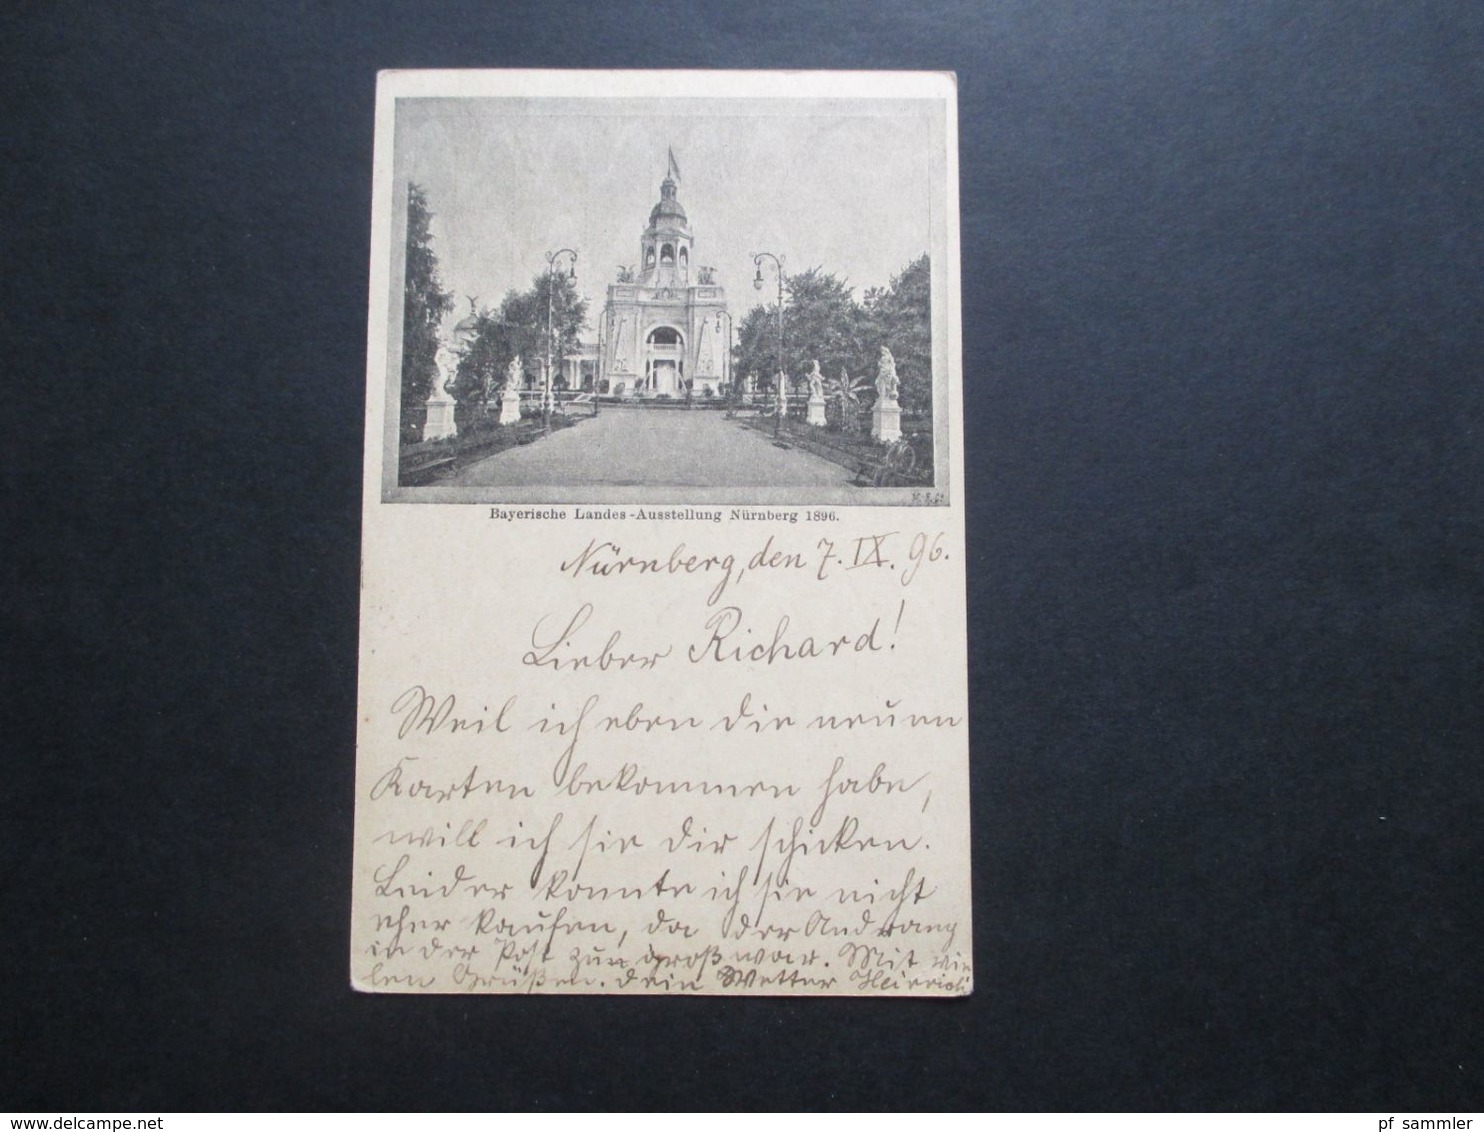 Bayerische Landes-Ausstellung Nürnberg 1896.
Nürnberg, den 7. IX. 96.
Lieber Richard!
Weil ich eben die neuen
Karten bekommen habe,
will ich sie dir schicken.
Leider konnte ich sie nicht
eher kaufen, da der Andrang
in der Post zu groß war. Mit vie
len Grüßen. dein Vetter Heinrich
pf sammler